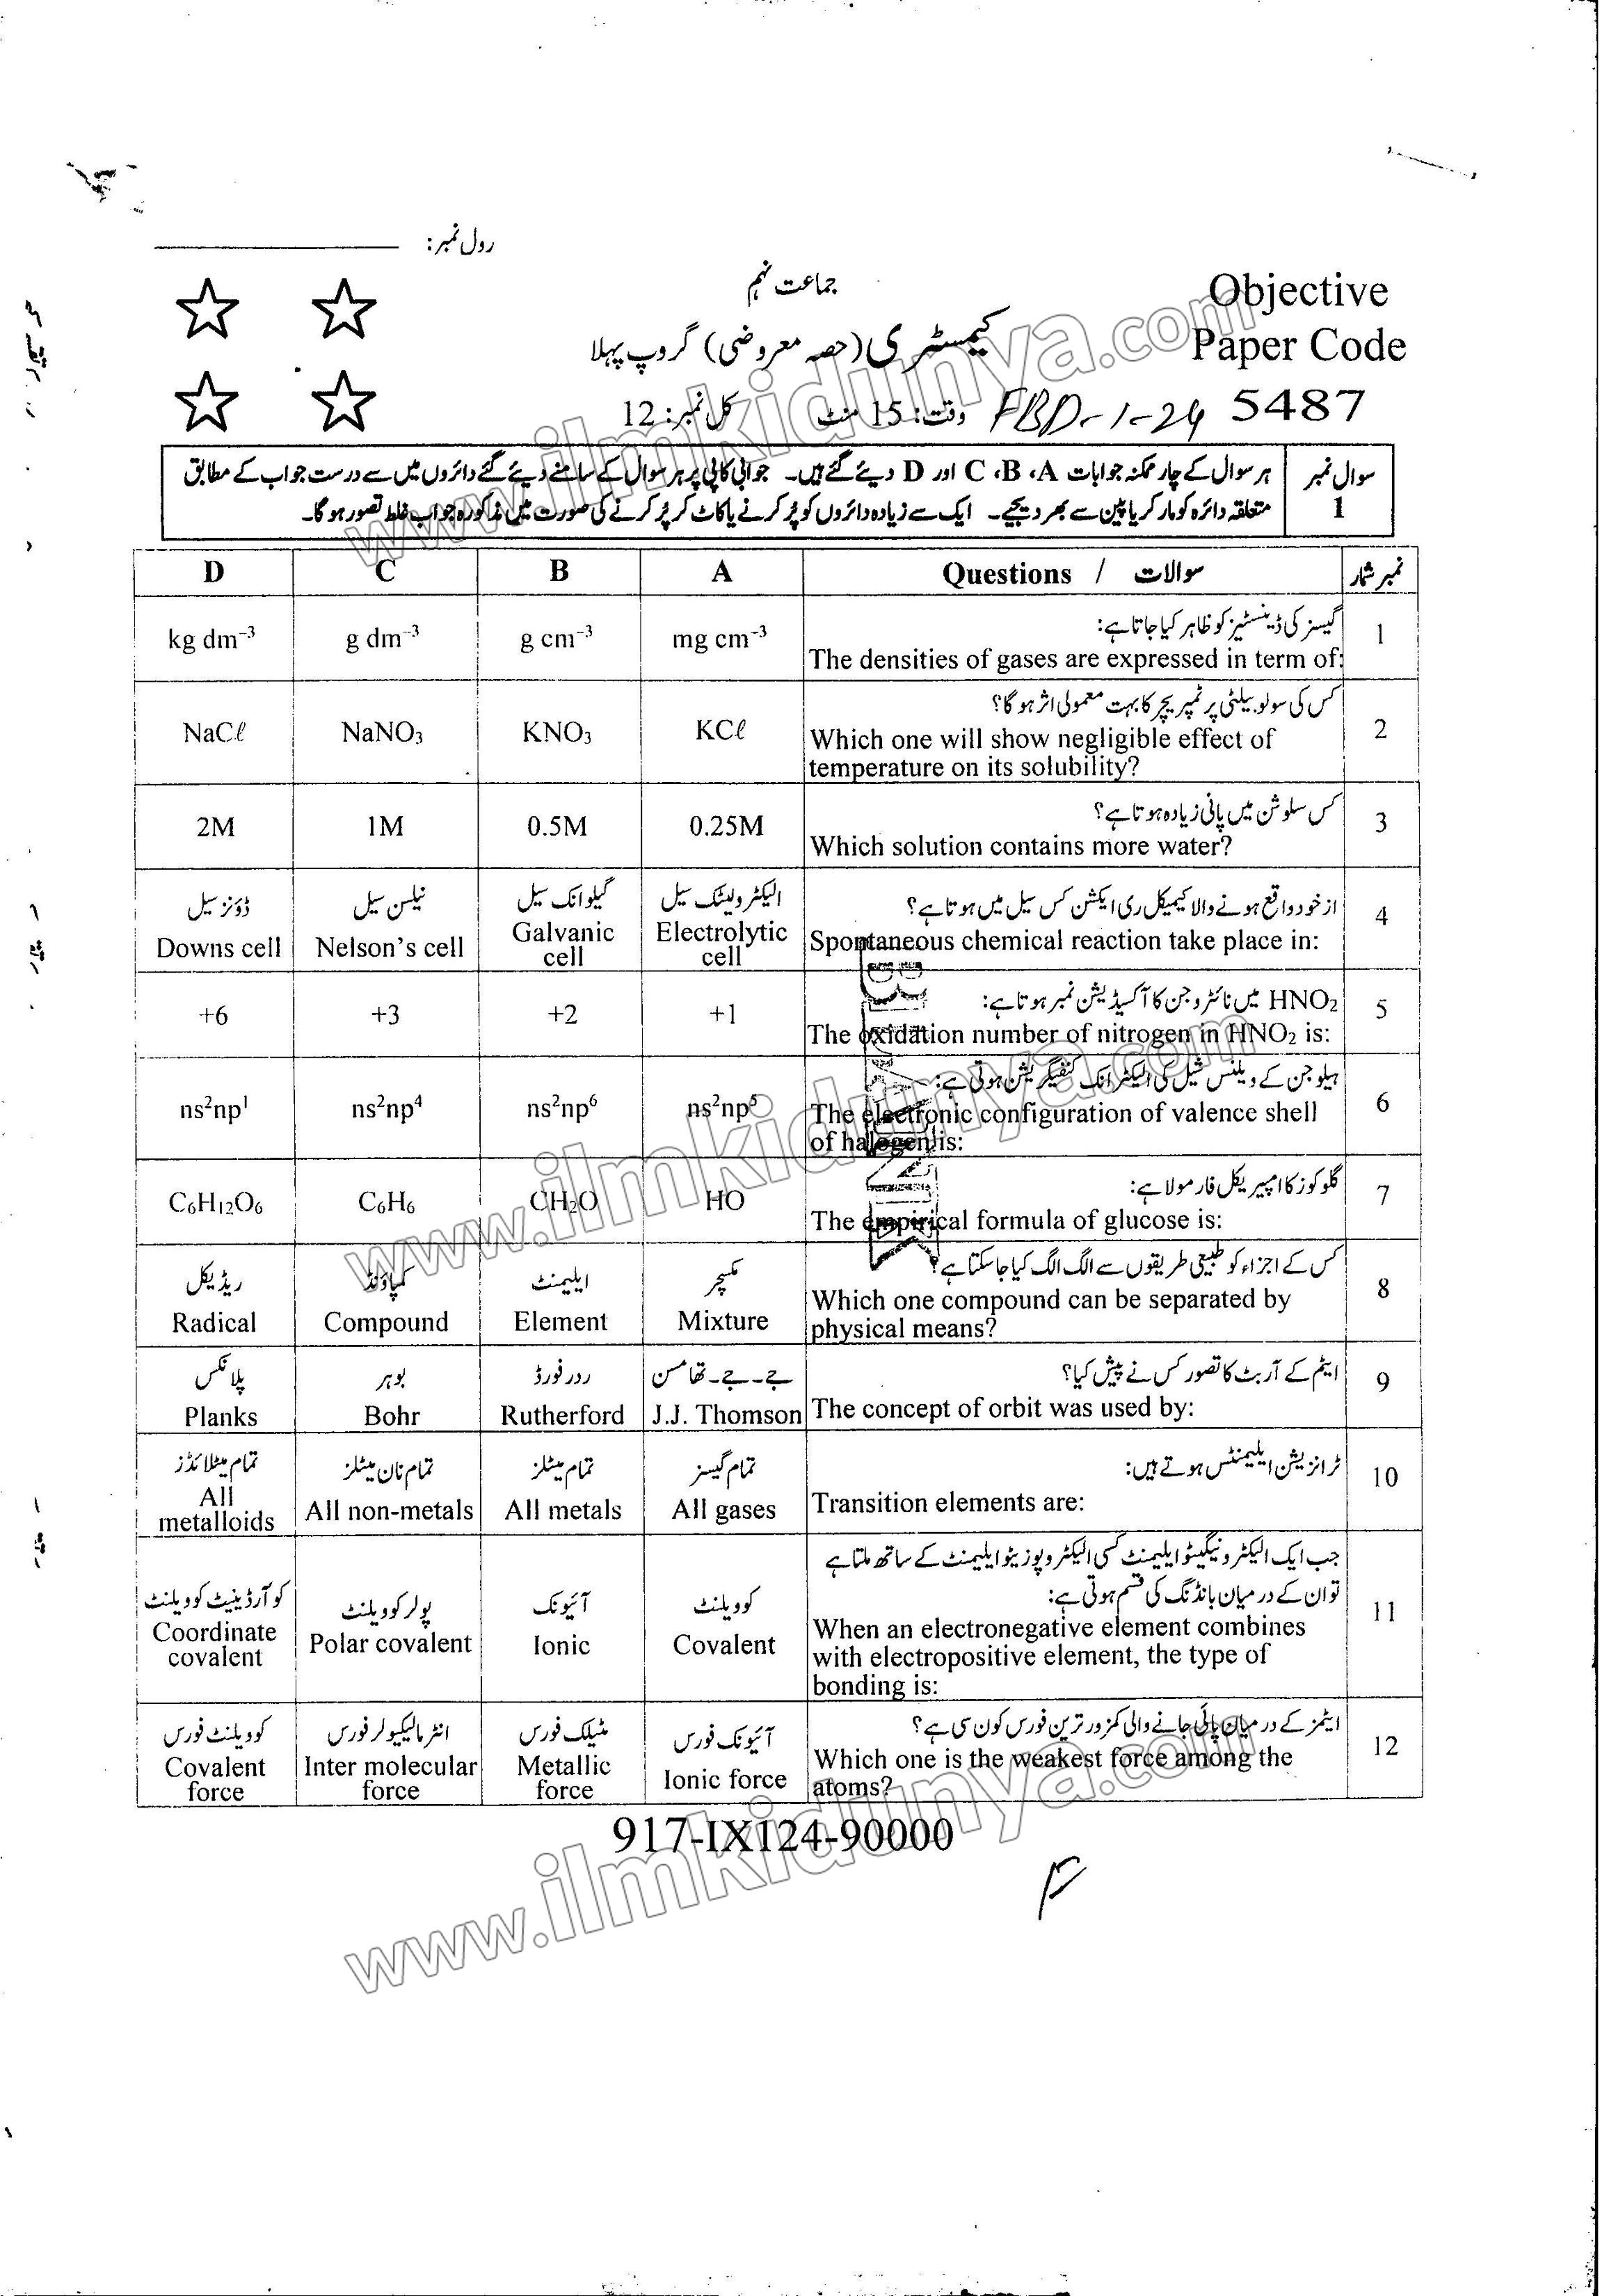 رول نمبر: ____________
جماعت نہم
Objective
Paper Code
5487
کیمسٹری (حصہ معروضی) گروپ پہلا
FBD-1-24 وقت: 15 منٹ کل نمبر: 12
سوال نمبر 1
ہر سوال کے چار ممکنہ جوابات A، B، C اور D دیئے گئے ہیں۔ جوابی کاپی پر ہر سوال کے سامنے دیئے گئے دائروں میں سے درست جواب کے مطابق
متعلقہ دائرہ کو مارکر یا پین سے بھر دیجیے۔ ایک سے زیادہ دائروں کو پُر کرنے یا کاٹ کر پُر کرنے کی صورت میں مذکورہ جواب غلط تصور ہوگا۔
نمبر شمار Questions / سوالات A B C D
1 گیسز کی ڈینسٹیز کو ظاہر کیا جاتا ہے:
The densities of gases are expressed in term of:
mg cm⁻³ g cm⁻³ g dm⁻³ kg dm⁻³
2 کس کی سولوبیلٹی پر ٹمپریچر کا بہت معمولی اثر ہوگا؟
Which one will show negligible effect of
temperature on its solubility?
KCℓ KNO₃ NaNO₃ NaCℓ
3 کس سلوشن میں پانی زیادہ ہوتا ہے؟
Which solution contains more water?
0.25M 0.5M 1M 2M
4 ازخود واقع ہونے والا کیمیکل ری ایکشن کس سیل میں ہوتا ہے؟
Spontaneous chemical reaction take place in:
الیکٹرولیٹک سیل گیلوانک سیل نیلسن سیل ڈاؤنز سیل
Electrolytic cell Galvanic cell Nelson's cell Downs cell
5 HNO₂ میں نائٹروجن کا آکسیڈیشن نمبر ہوتا ہے:
The oxidation number of nitrogen in HNO₂ is:
+1 +2 +3 +6
6 ہیلوجن کے ویلنس شیل کی الیکٹرانک کنفیگریشن ہوتی ہے:
The electronic configuration of valence shell
of halogen is:
ns²np⁵ ns²np⁶ ns²np⁴ ns²np¹
7 گلوکوز کا امپیریکل فارمولا ہے:
The empirical formula of glucose is:
HO CH₂O C₆H₆ C₆H₁₂O₆
8 کس کے اجزاء کو طبیعی طریقوں سے الگ الگ کیا جاسکتا ہے؟
Which one compound can be separated by
physical means?
مکسچر ایلیمنٹ کمپاؤنڈ ریڈیکل
Mixture Element Compound Radical
9 ایٹم کے آربٹ کا تصور کس نے پیش کیا؟
The concept of orbit was used by:
جے۔جے۔تھامسن ردرفورڈ بوہر پلانکس
J.J. Thomson Rutherford Bohr Planks
10 ٹرانزیشن ایلیمنٹس ہوتے ہیں:
Transition elements are:
تمام گیسز تمام میٹلز تمام نان میٹلز تمام میٹلائڈز
All gases All metals All non-metals All metalloids
11 جب ایک الیکٹرونیگیٹو ایلیمنٹ کسی الیکٹروپوزیٹو ایلیمنٹ کے ساتھ ملتا ہے
تو ان کے درمیان بانڈنگ کی قسم ہوتی ہے:
When an electronegative element combines
with electropositive element, the type of
bonding is:
کوویلنٹ آئیونک پولر کوویلنٹ کوآرڈینیٹ کوویلنٹ
Covalent Ionic Polar covalent Coordinate covalent
12 ایٹمز کے درمیان پائی جانے والی کمزور ترین فورس کون سی ہے؟
Which one is the weakest force among the
atoms?
آئیونک فورس مٹیلک فورس انٹرمالیکیولر فورس کوویلنٹ فورس
Ionic force Metallic force Inter molecular force Covalent force
917-IX124-90000
www.ilmkidunya.com
www.ilmkidunya.com
www.ilmkidunya.com